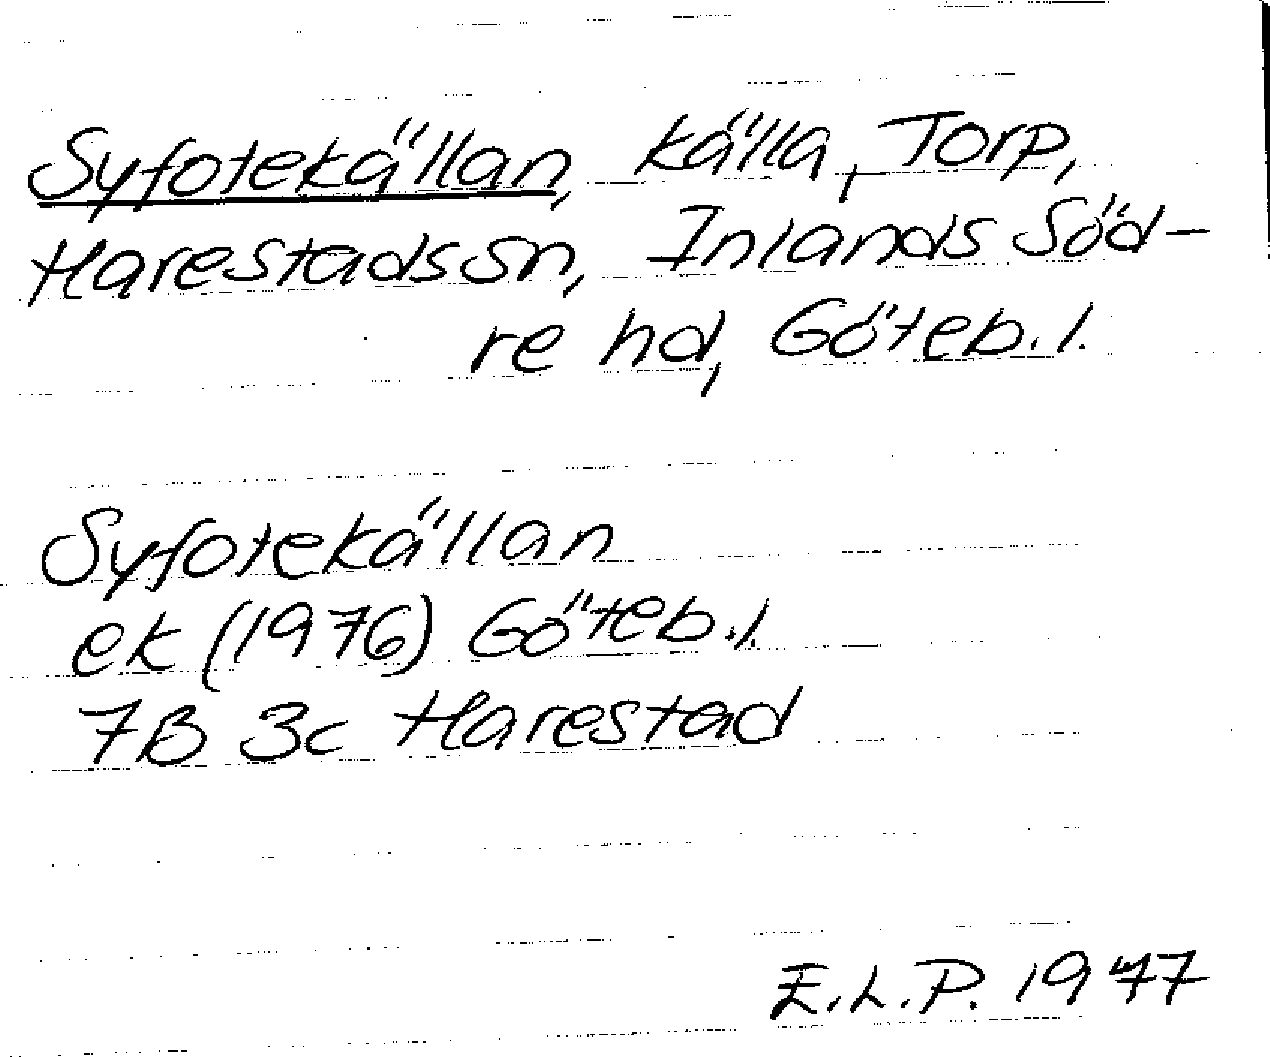 Syfotekällan, källa, Torp,
Harestads sn, Inlands Söd-
re hd, Göteb. l.
Syfotekällan
ek (1976) Göteb. l.
7B 3c Harestad
E.L.P. 1977